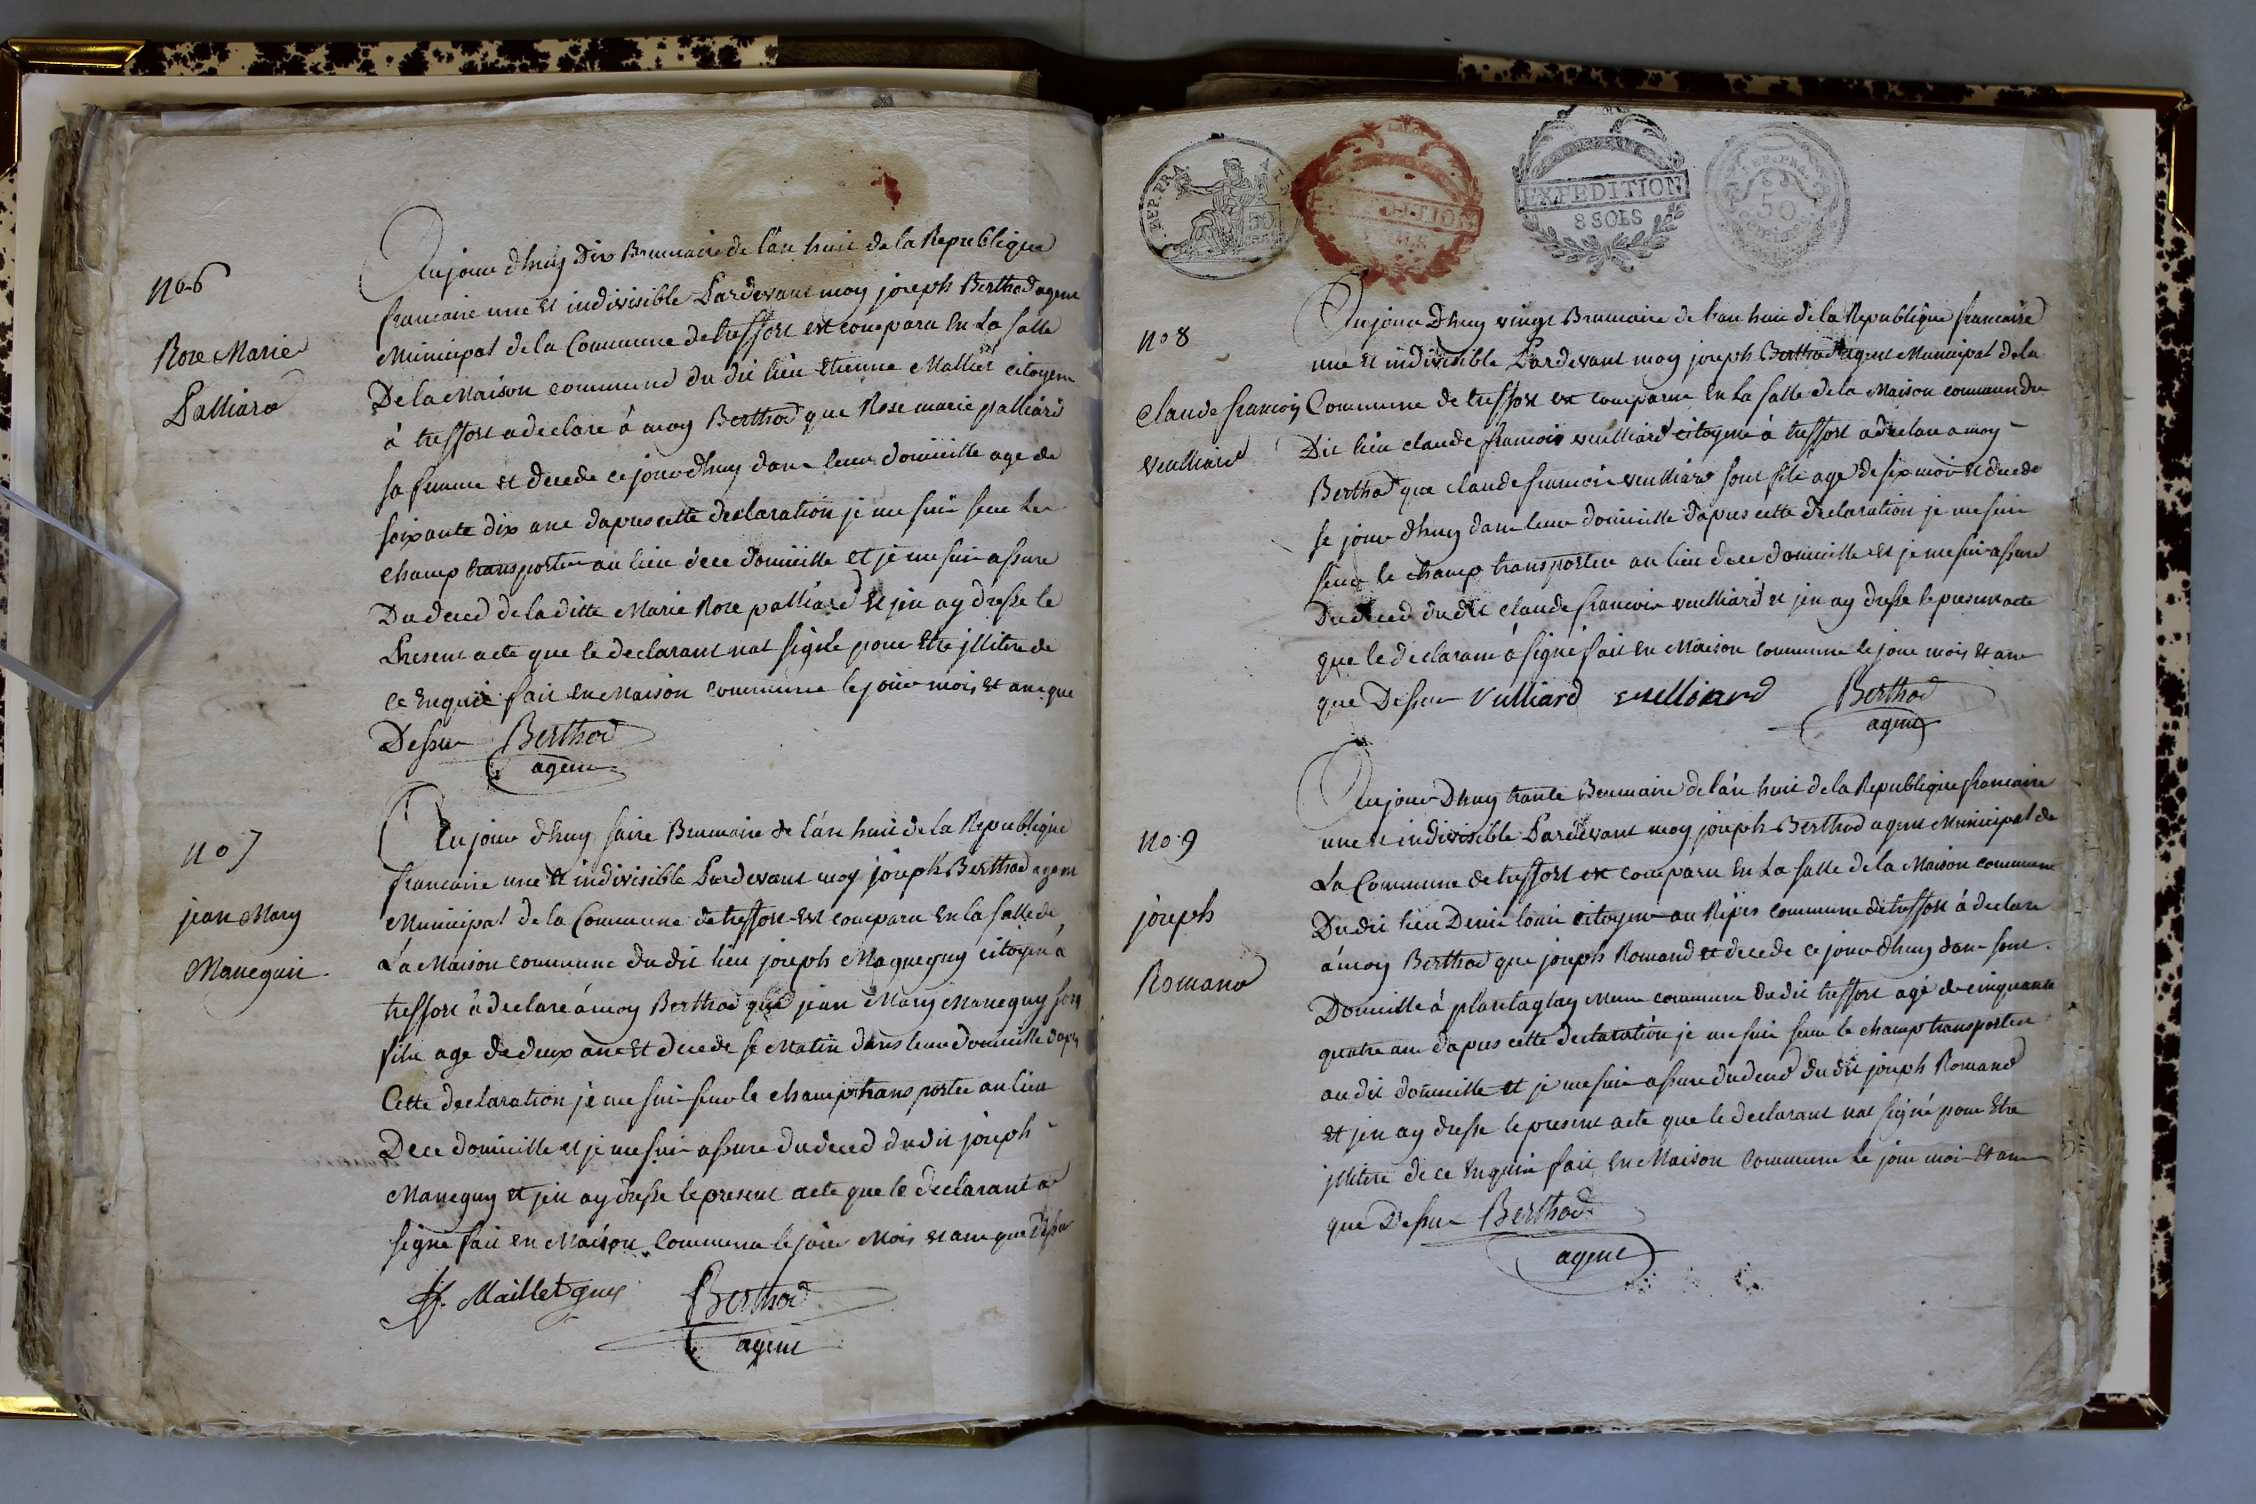 no 6
Rose Marie
Palliard
Aujour dhuy Dix Brumaire de l'an huit de la Republique
francaise une et indivisible Pardevant moy joseph Berthod agent
Municipal de la Commune de treffort est comparu En La Salle
De la Maison commune du dit lieu Etienne Mallet citoyen
á treffort a declaré á moy Berthod que Rose marie palliard
sa femme et decede ce jourdhuy dans leur domicille age de
soixante dix ans dapres cette declaration je me suis sur Le
champ transporter au lieu dece domicille et je me suis assure
Du deced de la ditte Marie Rose palliard et jen ay dresse le
Present acte que le declarant nat signe pour Etre jllitere de
ce Enquis fait En Maison commune le jour mois et an que
Dessu Berthod
agent
no 7
jean Mary
Maneguin
Aujour dhuy saise Brumaire de l'an huit de la Republique
francaise une et indivisible Pardevant moy joseph Berthod agent
Municipal de la Commune de treffort Est comparu En la Salle de
La Maison commune du dit lieu joseph Maqueguy citoyen á
treffort á declare á moy Berthod que jean Mary Maneguy son
fils age de deux ans Et decede se Matin dans leur domicille dapres
Cette declaration je me suis sur le champ transporter au lieu
De ce domicille et je me suis assure du deced du dit joseph
Maneguy et jen ay dresse le present acte que le declarant a
signe fait en Maison Commune le jour Mois et an que Dessu
Mailletguy Berthod
agent
REP. FRA
50
EXPEDITION
8 SOLS
REP. FRA.
50
no 8
Claude francois
Veulliard
Aujour Dhuy vingt Brumaire de l'an huit de la Republique francaise
une et indivisible Pardevant moy joseph Berthod agent Municipal de la
Commune de treffort est comparu En La Salle de la Maison commun du
Dit lieu claude francois veulliard citoyen á treffort a declare a moy
Berthod que claude francois veulliard sont fils age de six mois et decede
se jour dhuy dans leur domicille dapres cette declaration je me suis
sur le champ transporter au lieu dece domicille et je me suis assure
Du deced du dit claude francois veulliard et jen ay dresse le present acte
que le declarant á signé fait En Maison commune le jour mois et an
que Dessu Vulliard vulliard Berthod
agent
no 9
joseph
Romand
Aujour Dhuy trante Brumaire de l'an huit de la Republique francaise
une et indivisible Pardevant moy joseph Berthod agent Municipal de
La Commune de treffort est comparu En La Salle de la Maison commune
Du dit lieu Denis louis citoyen au Ripes commune de treffort á declare
á moy Berthod que joseph Romand et decede ce jour dhuy dans sont
Domicille á plantaglay Meme commune du dit treffort agé de cinquante
quatre ans dapres cette declaration je me suis sur le champ transporter
au dit domicille et je me suis assure du deced du dit joseph Romand
et jen ay dresse le present acte que le declarant nat signé pour Etre
jllitere de ce Enquis fait En Maison Commune le jour mois Et an
que Dessu Berthod
agent